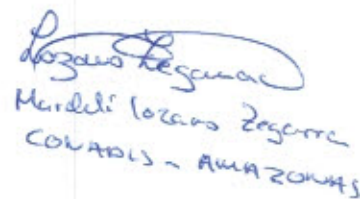 Lozano Zegarra
Mardeli lozano Zegarra
CONADIS - AMAZONAS